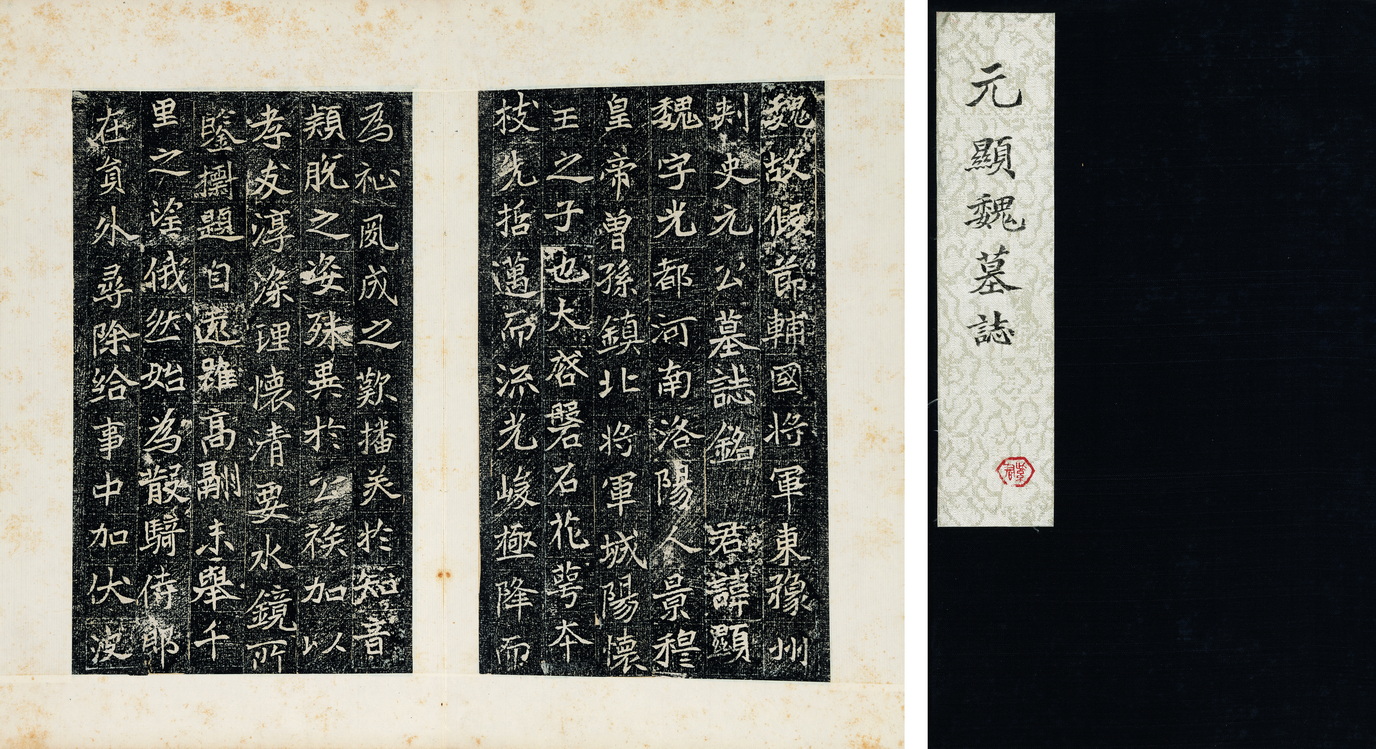 元顯魏墓誌
魏故假節輔國將軍東豫州
刺史元公墓誌銘 君諱顯
魏字光都河南洛陽人景穆
皇帝曾孫鎮北將軍城陽懷
王之子也大啓磐石花萼本
枝先哲邁而流光峻極降而
為祉夙成之歎播美於知音
穎脫之姿殊異於公族加以
孝友淳深理懷清要水鏡所
鑒摽題自遠雖高翮未舉千
里之望俄然始為散騎侍郎
在員外尋除給事中加伏波